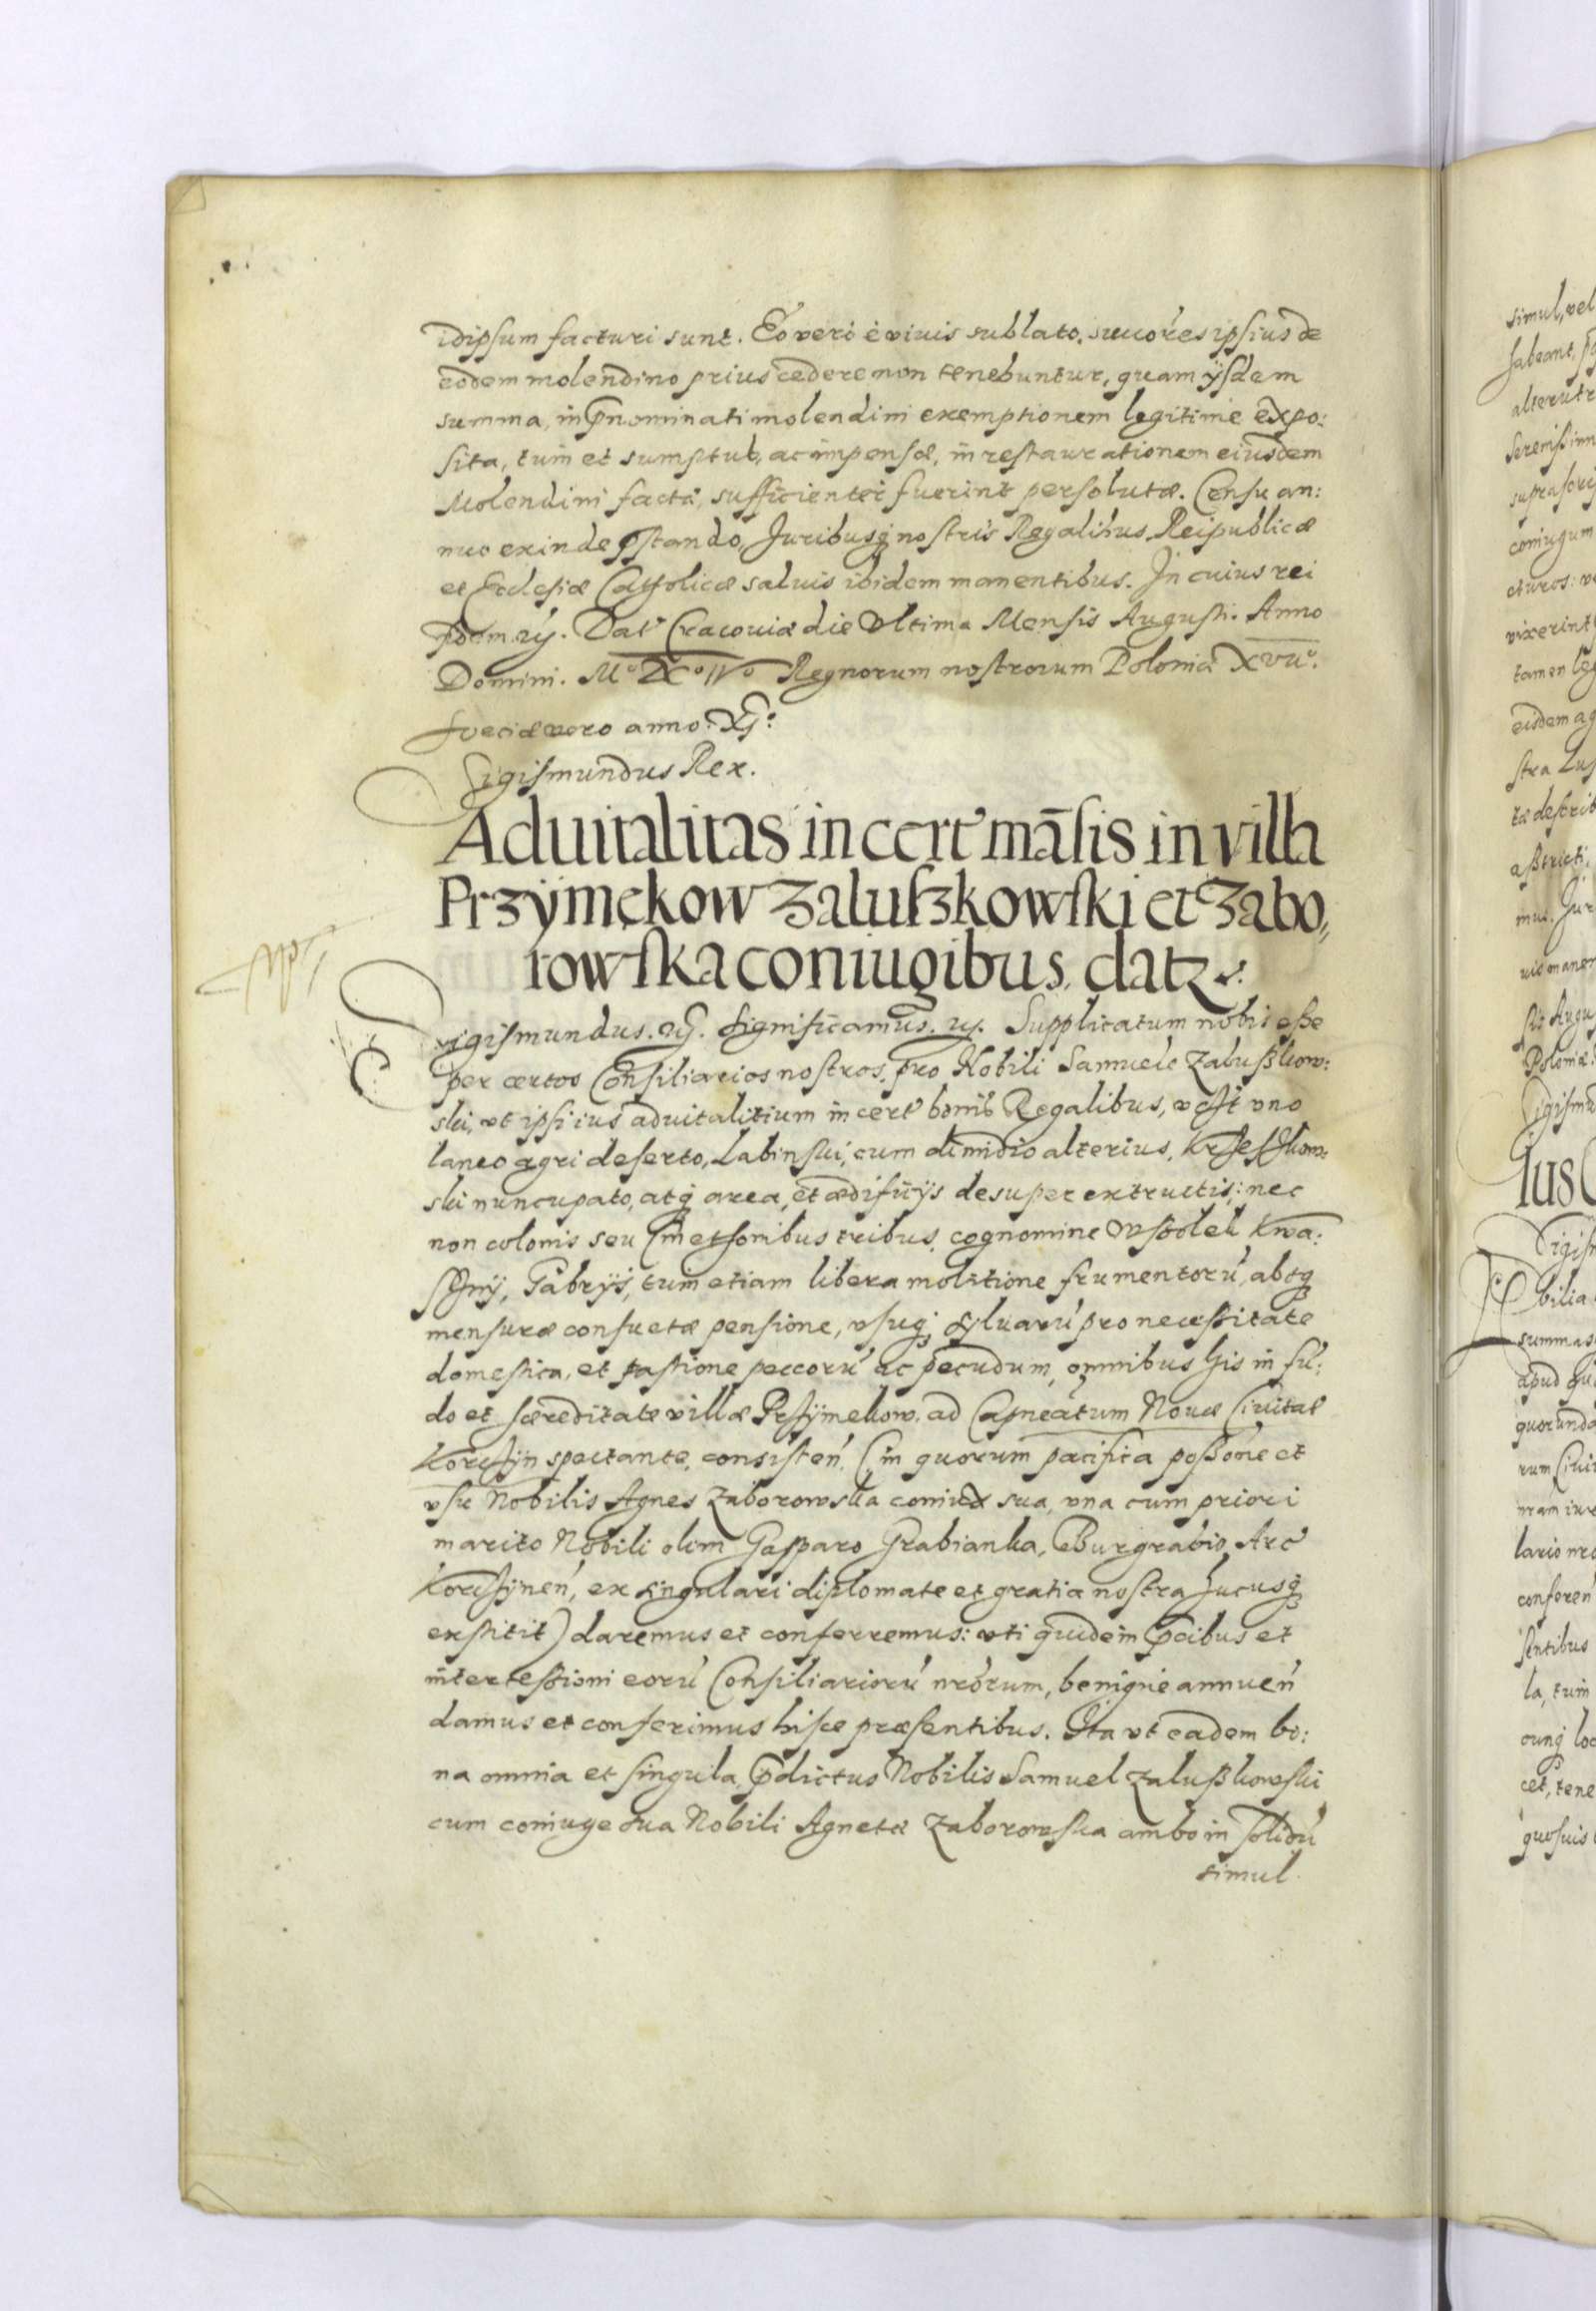 idipsum facturi sunt. Eo vero è viuis sublato, succores ipsius de
eodem molendino prius cedere non tenebuntur, quam ijsdem
summa, in pnominati molendini exemptionem legitime expo:
sita, tum et sumptub, ac impensæ, in restaurationem eiusdem
Molendini factæ, sufficienter fuerint persolutæ. Censu an:
nuo exinde pstando, Juribusq nostris Regalibus Reipublicæ
et Ecclesiæ Catholicæ saluis ibidem manentibus. In cuius rei
Dat Cracoviæ die Vltima Mensis Augusti. Anno
Domini. Regnorum nostrorum Poloniæ XVIIo.
Sveciæ vero anno. XIo.
Sigismundus Rex.
Aduitalitas in cert māsis in villa
Przymękow Zaluszkowski et Zabo„
rowska coniugibus. datr.
Sigismundus. Significamus. Supplicatum nobis esse
per certos Consiliarios nostros, pro Nobili Samuele Zalußkow:
ski, vt ipsi ius aduitalitium in cert bonis Regalibus, vest vno
laneo agri deserto, Labinski, cum dimidio alterius,
ski nuncupato, atq area, et ædificijs desuper extructis, nec
non colonis seu Cmethonibus tribus, cognomine Kwa:
Gabryś, tum etiam libera molitione frumentorū, absq
mensuræ consuetæ pensione, vsuq syluarū pro necessitate
domestica, et pastione peccorū ac pecudum, omnibus his in fū:
do et hæreditate villæ Przÿmekow, ad Capneātum Nouæ Ciuitat
Korczyn spectante, consisteñ. (in quorum pacifica poßone et
vsu Nobilis Agnes Zaborowska coniux sua, vna cum priori
marito Nobili olim Gasparo Grabianka, Burgrabio Arc
Korczynen, ex singulari diplomate et gratia nostra hucusq
exstitit) daremus et conferremus: vti quidem pcibus et
intercessioni eorū Consiliariorū nrōrum, benigne annueñ
damus et conferimus hisce præsentibus. Ita vt eadem bo:
na omnia et singula, pdictus Nobilis Samuel Zalußkowski
cum coniuge sua Nobili Agneta Zaborowska ambo in solidū
simul